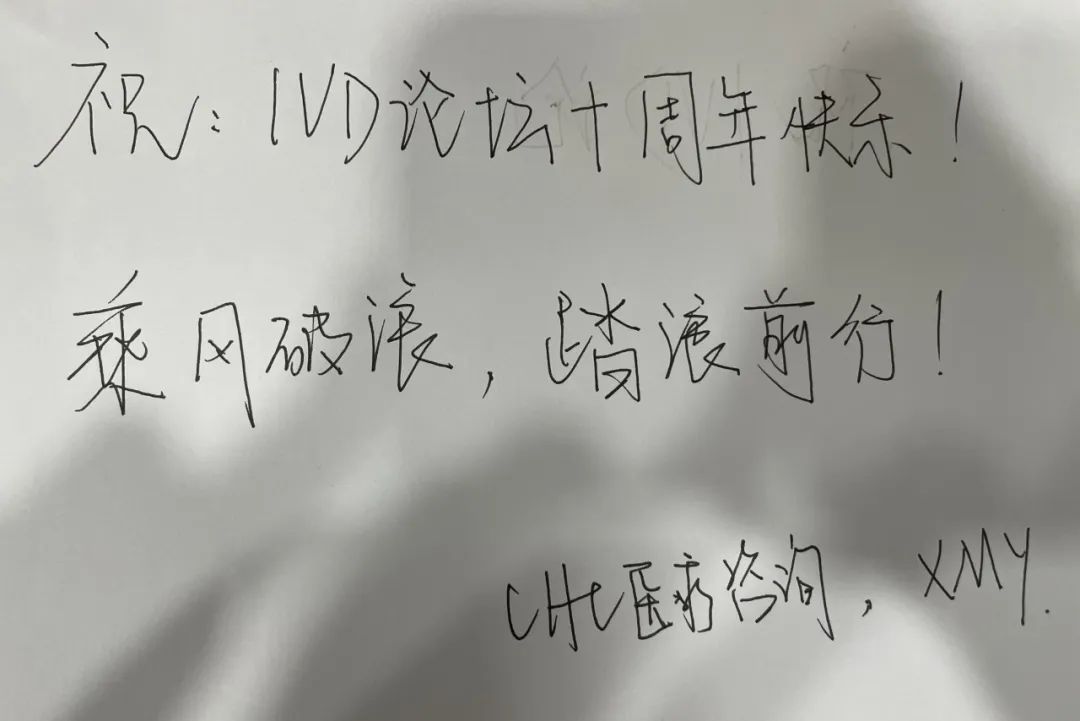 祝：IVD论坛十周年快乐！
乘风破浪，踏浪前行！
CHC医疗咨询，XMY.